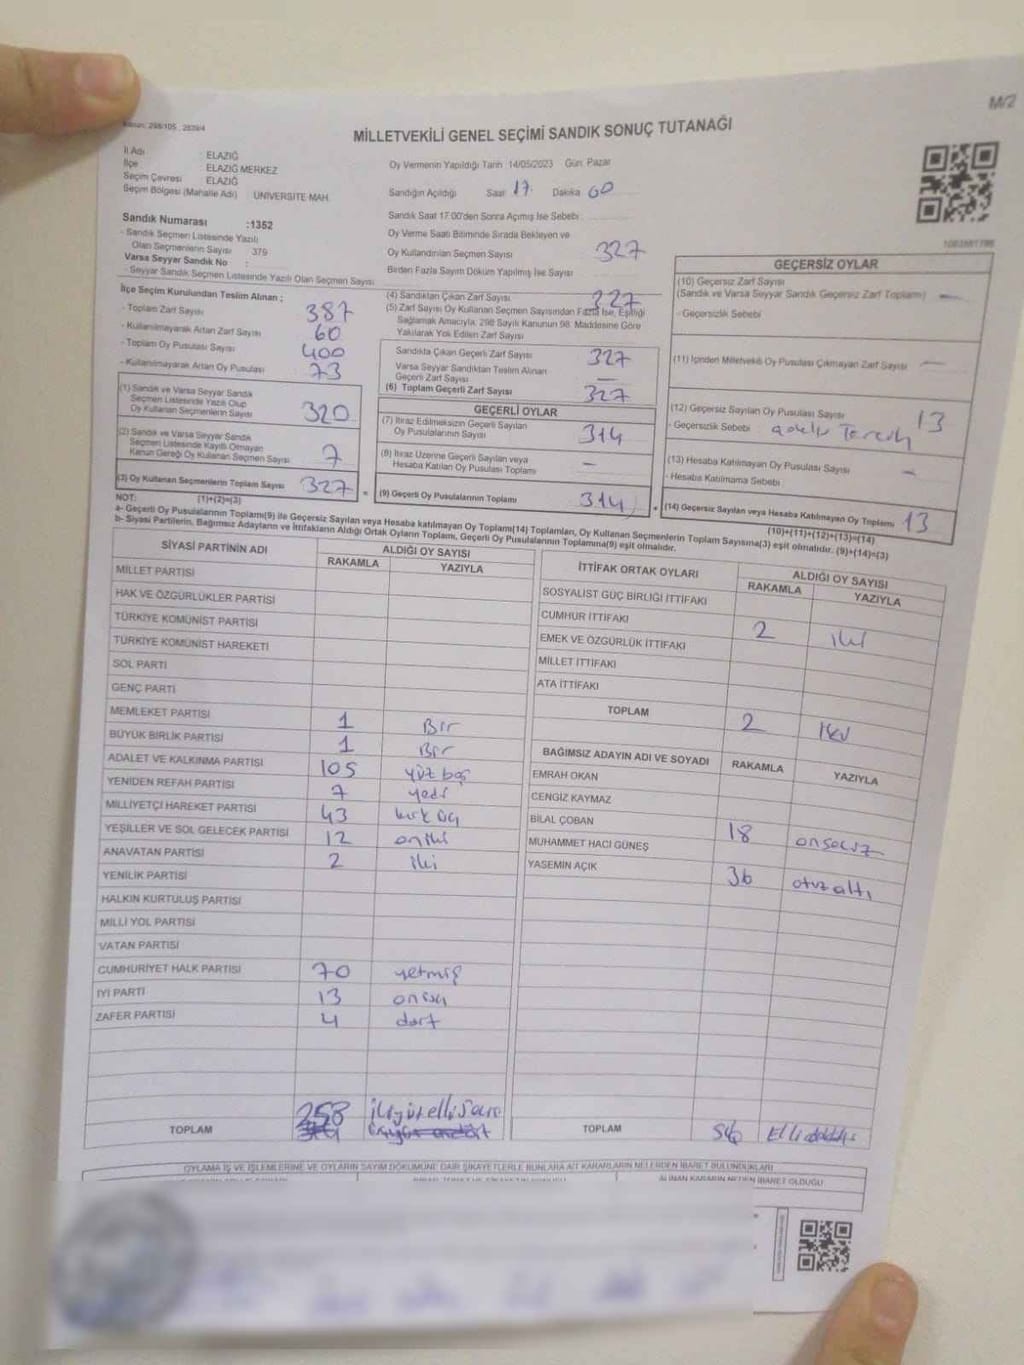 M/2
Kanun: 298/105, 2839/4
MİLLETVEKİLİ GENEL SEÇİMİ SANDIK SONUÇ TUTANAĞI
İl Adı : ELAZIĞ
İlçe : ELAZIĞ MERKEZ
Seçim Çevresi : ELAZIĞ
Seçim Bölgesi (Mahalle Adı) : ÜNİVERSİTE MAH.
Oy Vermenin Yapıldığı Tarih : 14/05/2023 Gün: Pazar
Sandığın Açıldığı Saat 17 Dakika 00
Sandık Numarası :1352
- Sandık Seçmen Listesinde Yazılı Olan Seçmenlerin Sayısı 379
Varsa Seyyar Sandık No :
- Seyyar Sandık Seçmen Listesinde Yazılı Olan Seçmen Sayısı
Sandık Saat 17.00'den Sonra Açılmış İse Sebebi :
Oy Verme Saati Bitiminde Sırada Bekleyen ve
Oy Kullandırılan Seçmen Sayısı 327
Birden Fazla Sayım Döküm Yapılmış İse Sayısı
İlçe Seçim Kurulundan Teslim Alınan ;
- Toplam Zarf Sayısı 387
- Kullanılmayarak Artan Zarf Sayısı 60
- Toplam Oy Pusulası Sayısı 400
- Kullanılmayarak Artan Oy Pusulası 73
(1) Sandık ve Varsa Seyyar Sandık
Seçmen Listesinde Yazılı Olup
Oy Kullanan Seçmenlerin Sayısı 320
(2) Sandık ve Varsa Seyyar Sandık
Seçmen Listesinde Kayıtlı Olmayan
Kanun Gereği Oy Kullanan Seçmen Sayısı 7
(3) Oy Kullanan Seçmenlerin Toplam Sayısı 327
(4) Sandıktan Çıkan Zarf Sayısı 327
(5) Zarf Sayısı Oy Kullanan Seçmen Sayısından Fazla İse, Eşitliği
Sağlamak Amacıyla, 298 Sayılı Kanunun 98. Maddesine Göre
Yakılarak Yok Edilen Zarf Sayısı
Sandıkta Çıkan Geçerli Zarf Sayısı 327
Varsa Seyyar Sandıktan Teslim Alınan
Geçerli Zarf Sayısı —
(6) Toplam Geçerli Zarf Sayısı 327
GEÇERLİ OYLAR
(7) İtiraz Edilmeksizin Geçerli Sayılan
Oy Pusulalarının Sayısı 314
(8) İtiraz Üzerine Geçerli Sayılan veya
Hesaba Katılan Oy Pusulası Toplamı —
= (9) Geçerli Oy Pusulalarının Toplamı 314
GEÇERSİZ OYLAR
(10) Geçersiz Zarf Sayısı
(Sandık ve Varsa Seyyar Sandık Geçersiz Zarf Toplamı) —
- Geçersizlik Sebebi
(11) İçinden Milletvekili Oy Pusulası Çıkmayan Zarf Sayısı —
(12) Geçersiz Sayılan Oy Pusulası Sayısı 13
- Geçersizlik Sebebi : Tercih
(13) Hesaba Katılmayan Oy Pusulası Sayısı —
- Hesaba Katılmama Sebebi
+ (14) Geçersiz Sayılan veya Hesaba Katılmayan Oy Toplamı 13
(10)+(11)+(12)+(13)=(14)
NOT: (1)+(2)=(3)
a- Geçerli Oy Pusulalarının Toplamı(9) ile Geçersiz Sayılan veya Hesaba katılmayan Oy Toplamı(14) Toplamları, Oy Kullanan Seçmenlerin Toplam Sayısına(3) eşit olmalıdır. (9)+(14)=(3)
b- Siyasi Partilerin, Bağımsız Adayların ve İttifakların Aldığı Ortak Oyların Toplamı, Geçerli Oy Pusulalarının Toplamına(9) eşit olmalıdır.
SİYASİ PARTİNİN ADI ALDIĞI OY SAYISI
RAKAMLA YAZIYLA
MİLLET PARTİSİ
HAK VE ÖZGÜRLÜKLER PARTİSİ
TÜRKİYE KOMÜNİST PARTİSİ
TÜRKİYE KOMÜNİST HAREKETİ
SOL PARTİ
GENÇ PARTİ
MEMLEKET PARTİSİ 1 Bir
BÜYÜK BİRLİK PARTİSİ 1 Bir
ADALET VE KALKINMA PARTİSİ 105 yüz beş
YENİDEN REFAH PARTİSİ 7 yedi
MİLLİYETÇİ HAREKET PARTİSİ 43 kırk üç
YEŞİLLER VE SOL GELECEK PARTİSİ 12 oniki
ANAVATAN PARTİSİ 2 iki
YENİLİK PARTİSİ
HALKIN KURTULUŞ PARTİSİ
MİLLİ YOL PARTİSİ
VATAN PARTİSİ
CUMHURİYET HALK PARTİSİ 70 yetmiş
İYİ PARTİ 13 onüç
ZAFER PARTİSİ 4 dört
258
TOPLAM
İTTİFAK ORTAK OYLARI ALDIĞI OY SAYISI
RAKAMLA YAZIYLA
SOSYALİST GÜÇ BİRLİĞİ İTTİFAKI
CUMHUR İTTİFAKI 2 iki
EMEK VE ÖZGÜRLÜK İTTİFAKI
MİLLET İTTİFAKI
ATA İTTİFAKI
TOPLAM 2 iki
BAĞIMSIZ ADAYIN ADI VE SOYADI RAKAMLA YAZIYLA
EMRAH OKAN
CENGİZ KAYMAZ
BİLAL ÇOBAN 18 onsekiz
MUHAMMET HACI GÜNEŞ
YASEMİN AÇIK 36 otuz altı
TOPLAM
OYLAMA İŞ VE İŞLEMLERİNE VE OYLARIN SAYIM DÖKÜMÜNE DAİR ŞİKAYETLERLE BUNLARA AİT KARARLARIN NELERDEN İBARET BULUNDUKLARI
ALINAN KARARIN NEDEN İBARET OLDUĞU